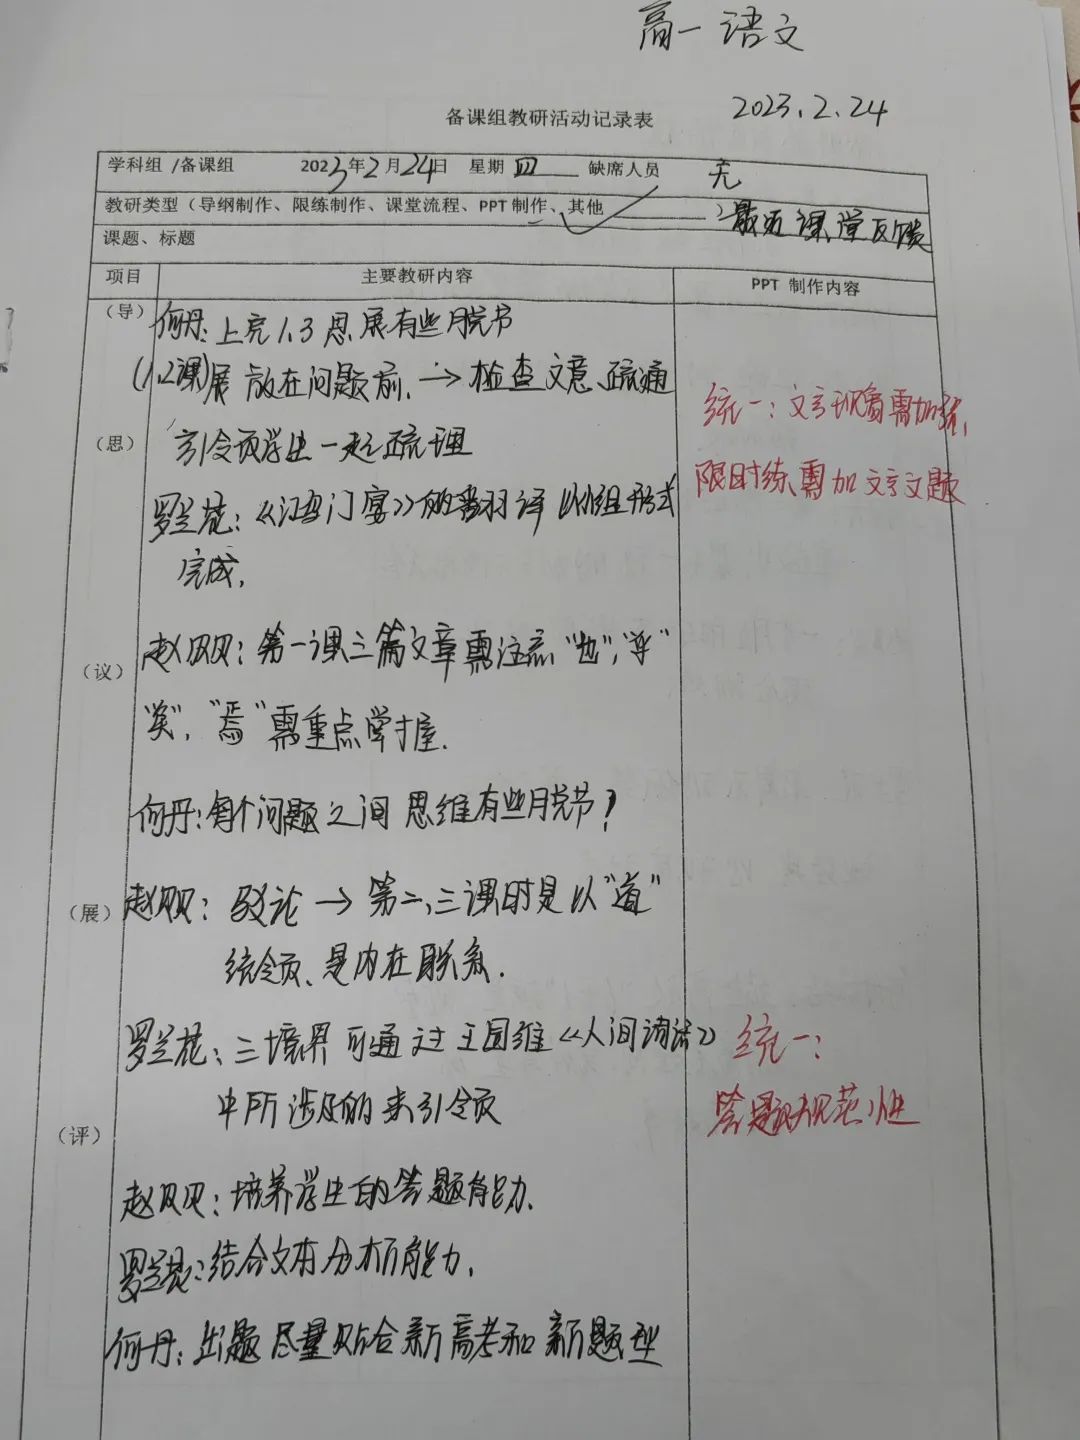 高一语文
2023.2.24
备课组教研活动记录表
学科组 /备课组 2023年2月24日 星期四 缺席人员 无
教研类型（导纲制作、限练制作、课堂流程、PPT 制作、其他 ）最近课堂反馈
课题、标题
项目 主要教研内容 PPT 制作内容
（导） 何丹：上完1.3思展有些脱节
(1.2课)展放在问题前. → 检查文意疏通
（思） 引领学生一起疏理
统一：文言
限时练需加文言文题
罗兰 ：《鸿门宴》的 翻译以小组形式
完成.
（议） 赵贝贝：第一课三篇文章需注意"也","乎"
"矣","焉"需重点掌握.
何丹：每个问题之间思维有些脱节？
（展） 赵贝贝：驳论 → 第二,三课时是以"道"
统领、是内在联系.
罗兰 ：三境界可通过王国维《人间词话》
中所涉及的来引领
统一：
答题规范性
（评）
赵贝贝：培养学生的答题能力.
罗兰 ：结合文本分析能力.
何丹：出题尽量贴合新高考和新题型